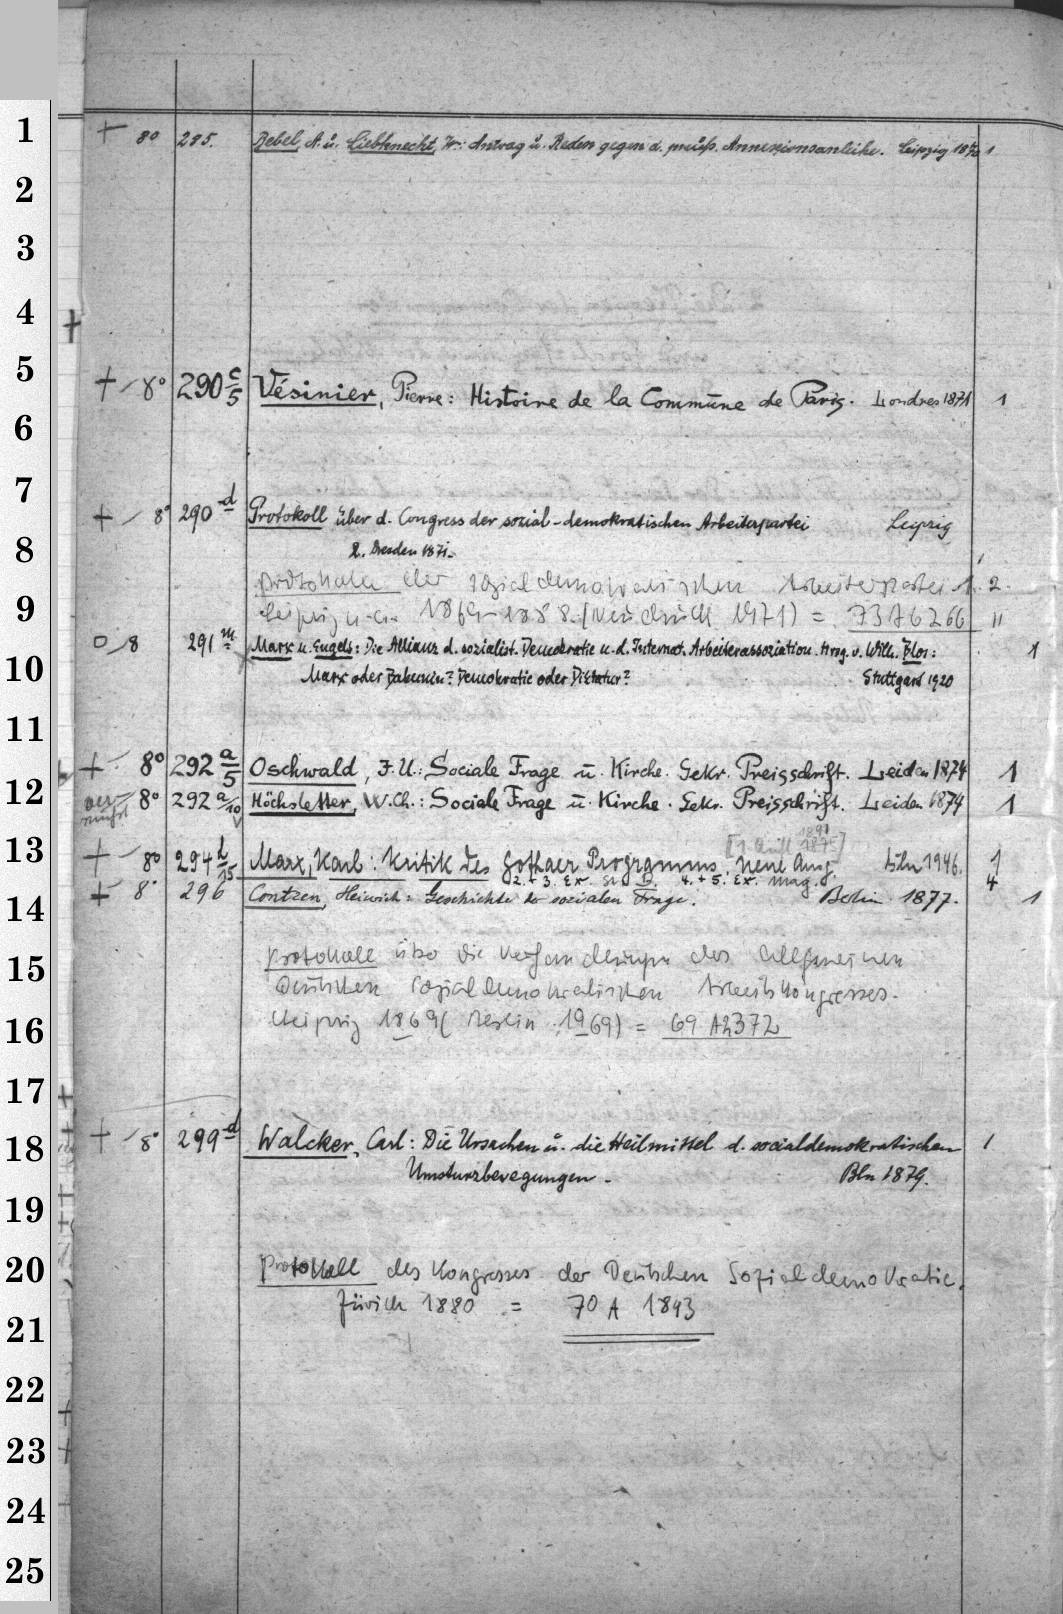 1
+ 8° 285. Bebel, A. u. Liebknecht, W.: Antrag u. Reden gegen d. preuß. Annexionsanleihe. Leipzig 1870 1
2
3
4
5
+ 8° 290 c/5 Vésinier, Pierre: Histoire de la Commune de Paris. Londres 1871 1
6
7
+ 8° 290 d Protokoll über d. Congress der social-demokratischen Arbeiterpartei Leipzig
8
2. Dresden 1871.
Protokolle der sozialdemokratischen Arbeiterpartei 1. 2.
9
Leipzig u.a. 1869-1888. (Neudruck 1971) = 73A6266 11
o 8 291 m Marx u. Engels: Die Allianz d. sozialist. Demokratie u. d. Internat. Arbeiterassoziation. Hrsg. v. Wilh. Blos: 1
10
Marx oder Bakunin? Demokratie oder Diktatur? Stuttgart 1920
11
+ 8° 292 a/5 Oschwald, J.U.: Sociale Frage u. Kirche. Gekr. Preisschrift. Leiden 1874 1
12
8° 292 a/10 Höchstetter, W.Ch.: Sociale Frage u. Kirche. Gekr. Preisschrift. Leiden 1874 1
13
1891
1875]
+ 8° 294 h/15 Marx, Karl: Kritik des Gothaer Programms. Neue Ausg. Bln 1946. 1
2. + 3. Ex. 4. + 5. Ex. Mag. 4
+ 8° 296 Contzen, Heinrich: Geschichte der sozialen Frage. Berlin 1877. 1
14
15
Protokoll über die Verhandlungen des Allgemeinen
Deutschen sozialdemokratischen Arbeiterkongresses.
16
Leipzig 1869 (Berlin 1969) = 69 A2372
17
+ 8° 299 d Walcker, Carl: Die Ursachen u. die Heilmittel d. socialdemokratischen 1
18
Umsturzbewegungen. Bln 1879.
19
20
Protokoll des Kongresses der Deutschen Sozialdemokratie.
Zürich 1880 = 70 A 1893
21
22
23
24
25